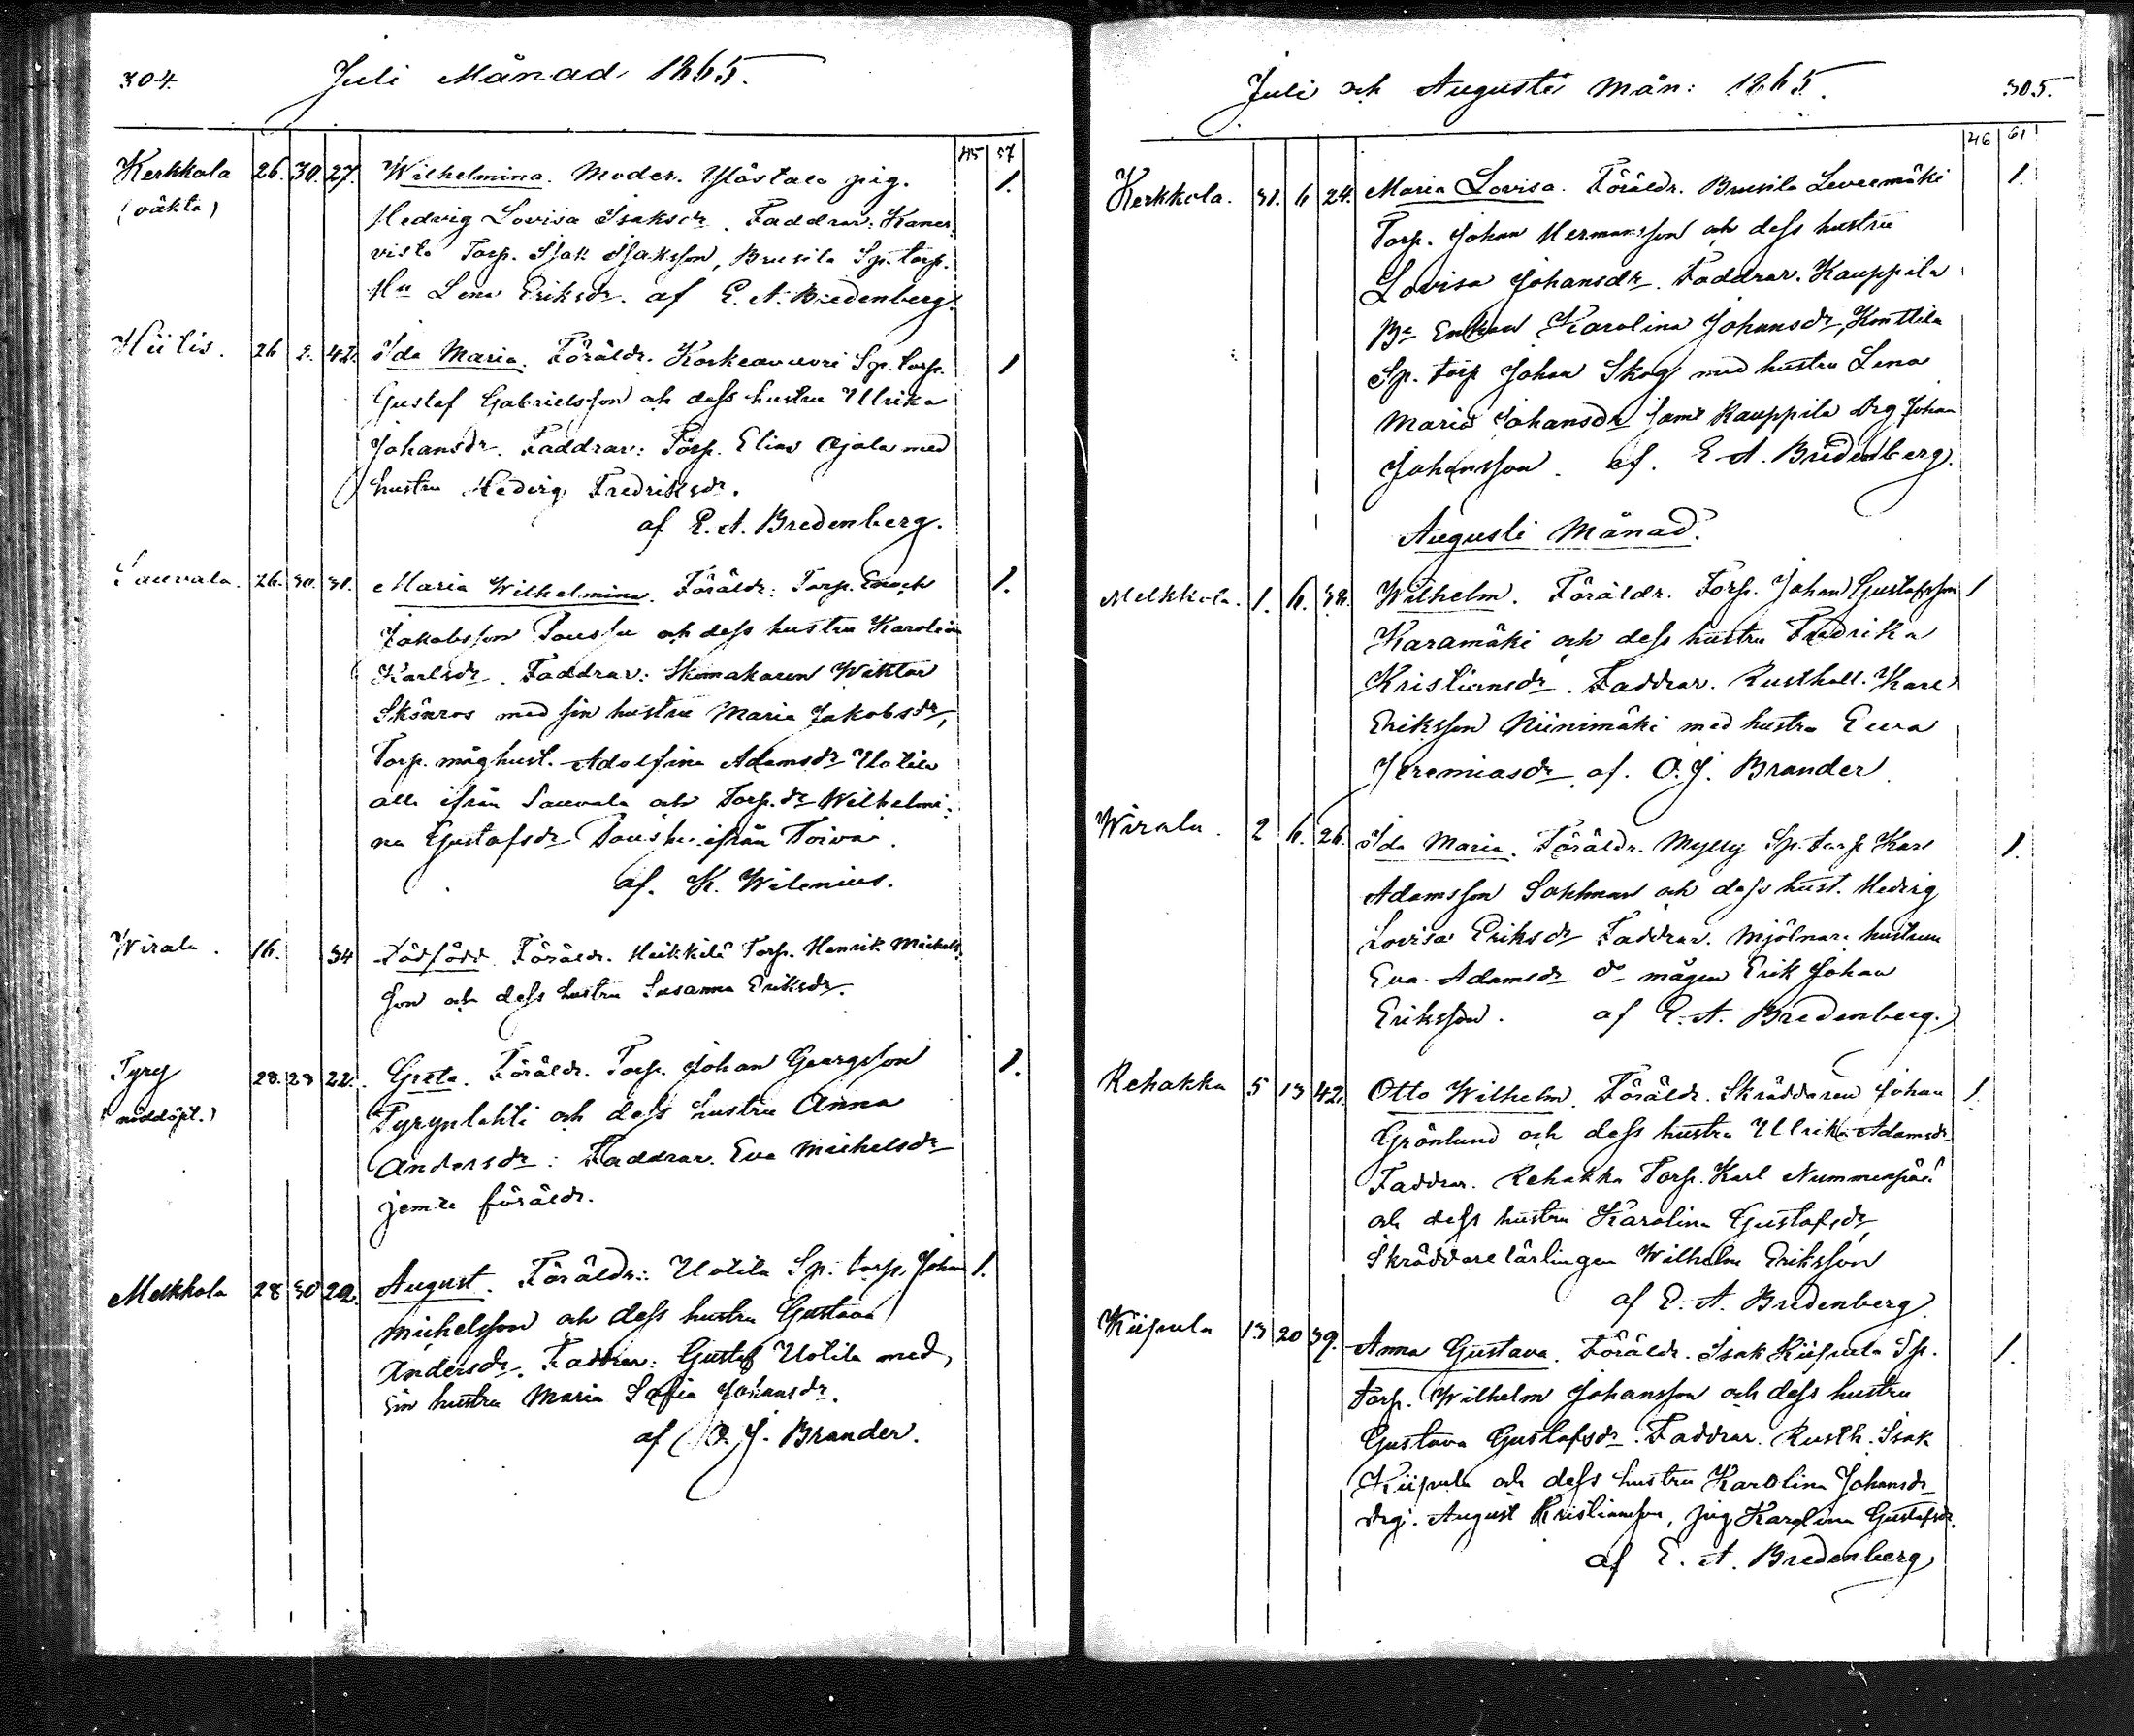 304. Juli Månad 1865.
45 57
Kerkkola 26. 30. 27. Wilhelmina. Moder. Ylöstalo pig. 1.
(oäkta) Hedvig Lovisa Isaksdr. Faddrar: Kaner-
visto Torp. Isak Isaksson, Brusila Sp. torp.
Hu Lena Eriksdr. af E. A. Bredenberg.
Hiitis. 26 2. 42. Ida Maria. Föräldr. Korkeavuori Sp. torp. 1
Gustaf Gabrielsson och dess hustru Ulrika
Johansdr. Faddrar: Torp. Elias Ojala med
hustru Hedvig Fredriksdr.
af E. A. Bredenberg.
Sauvala. 26. 30. 31. Maria Wilhelmina. Föräldr: Torp. Enoch 1.
Jakobsson Poussu och dess hustru Karolina
Karlsdr. Faddrar: Skomakaren Wiktor
Skönros med sin hustru Maria Jakobsdr,
Torp. måghust. Adolfina Adamsdr Uotila
alla ifrån Sauvala och Torp. dr Wilhelmi-
na Gustafsdr ifrån Toivai.
af. K. Wilenius.
Wirala. 16. 34 Dödfödd Föräldr. Heikkilä Torp. Henrik Michels-
son och dess hustru Susanna Eriksdr.
Tyry 28. 29 22. Greta. Föräldr. Torp. Johan Georgsson 1.
(nöddöpt.) Tyrynlahti och dess hustru Anna
Andersdr: Faddrar. Eva Michelsdr
jemte föräldr.
Melkkola 28 30 22. August. Föräldr: Uotila Sp. torp. Johan 1.
Michelsson och dess hustru Gustava
Andersdr. Faddrar: Gustaf Uotila med
sin hustru Maria Sofia Johansdr.
af O. J. Brander.
Juli och Augusti Mån: 1865. 305.
46 61
Kerkkola. 31. 6 24. Maria Lovisa. Föräldr. Brusila Leveemäki 1.
Torp. Johan Hermansson och dess hustru
Lovisa Johansdr. Faddrar. Kauppila
Be Enkan Karolina Johansdr, Konttila
Sp. torp Johan Skog med hustru Lena
Maria Johansdr samt Kauppila drg Johan
Johansson. af. E. A. Bredenberg.
Augusti Månad.
Melkkola. 1. 6. 38. Wilhelm. Föräldr. Torp. Johan Gustafsson 1
Karamäki och dess hustru Fredrika
Kristiansdr. Faddrar. Rusthåll. Karl
Eriksson Niinimäki med hustru Eva
Jeremiasdr af. O. J. Brander
Wirala. 2 6. 26. Ida Maria. Föräldr. Mylly Sp. torp Karl 1.
Adamsson Sohlman och dess hust. Hedvig
Lovisa Eriksdr Faddrar. Mjölnare hustrun
Eva Adamsdr do mågen Erik Johan
Eriksson. af E. A. Bredenberg.
Rehakka 5 13 42. Otto Wilhelm. Föräldr. Skräddaren Johan 1.
Grönlund och dess hustru Ulrika Adamsdr
Faddrar. Rehakka Torp. Karl Nummenpää
och dess hustru Karolina Gustafsdr,
Skräddarelärlingen Wilhelm Eriksson
af E. A. Bredenberg
Kiipula 13 20 39. Anna Gustava. Föräldr. Isak Kiipula Sp. 1.
torp. Wilhelm Johansson och dess hustru
Gustava Gustafsdr. Faddrar. Rusth. Isak
Kiipula och dess hustru Karolina Johansdr
drg. August Kristiansson, pig Karolina Gustafsdr.
af E. A. Bredenberg